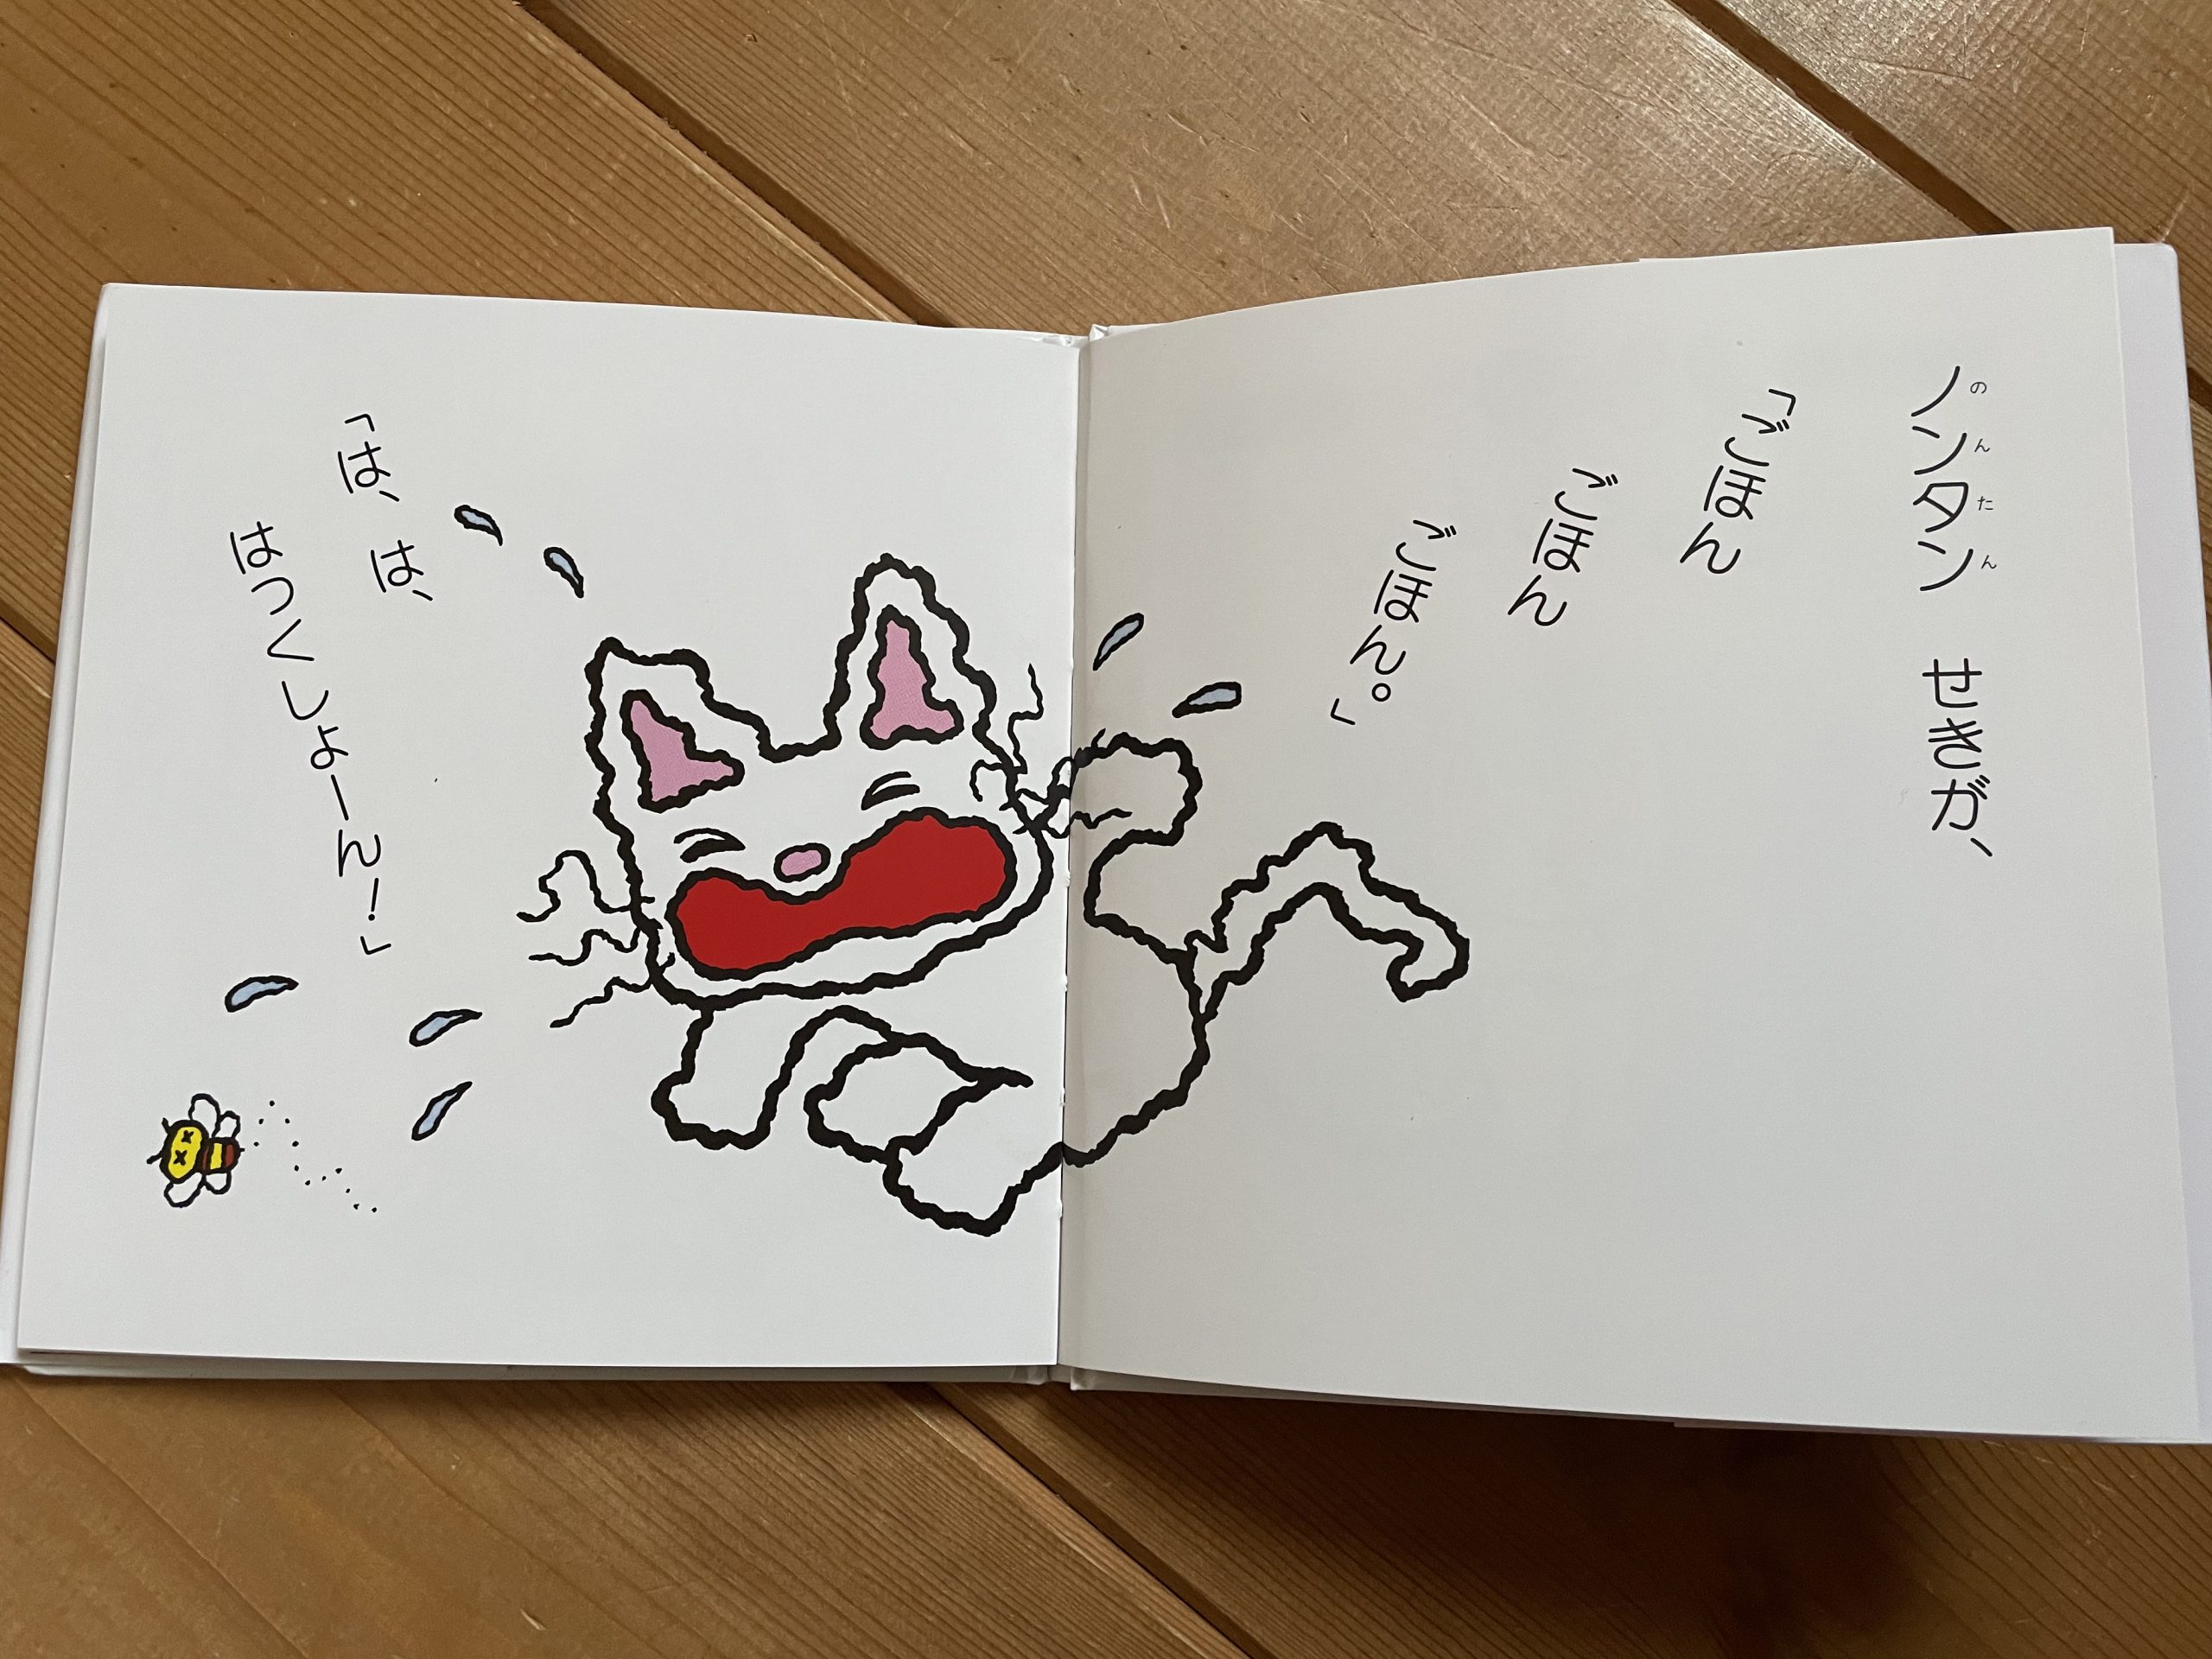 ノンタン　せきが、
のんたん
「ごほん
ごほん
ごほん。」
「は、は、
はっくしょーん！」